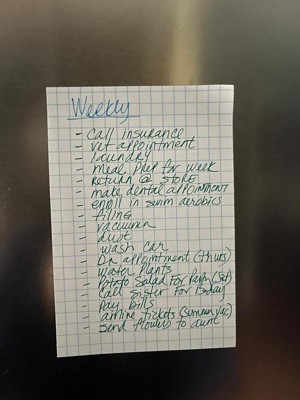 Weekly
- call insurance
- vet appointment
- laundry
- meal prep for week
- Return @ store
- make dental appointment
- enroll in swim aerobics
- filing
- vacuum
- dust
- wash car
- Dr appointment (thurs)
- water plants
- Potato Salad For Party (Sat)
- Call Sister For Bday
- pay bills
- airline tickets (summer vac)
- send flowers to aunt